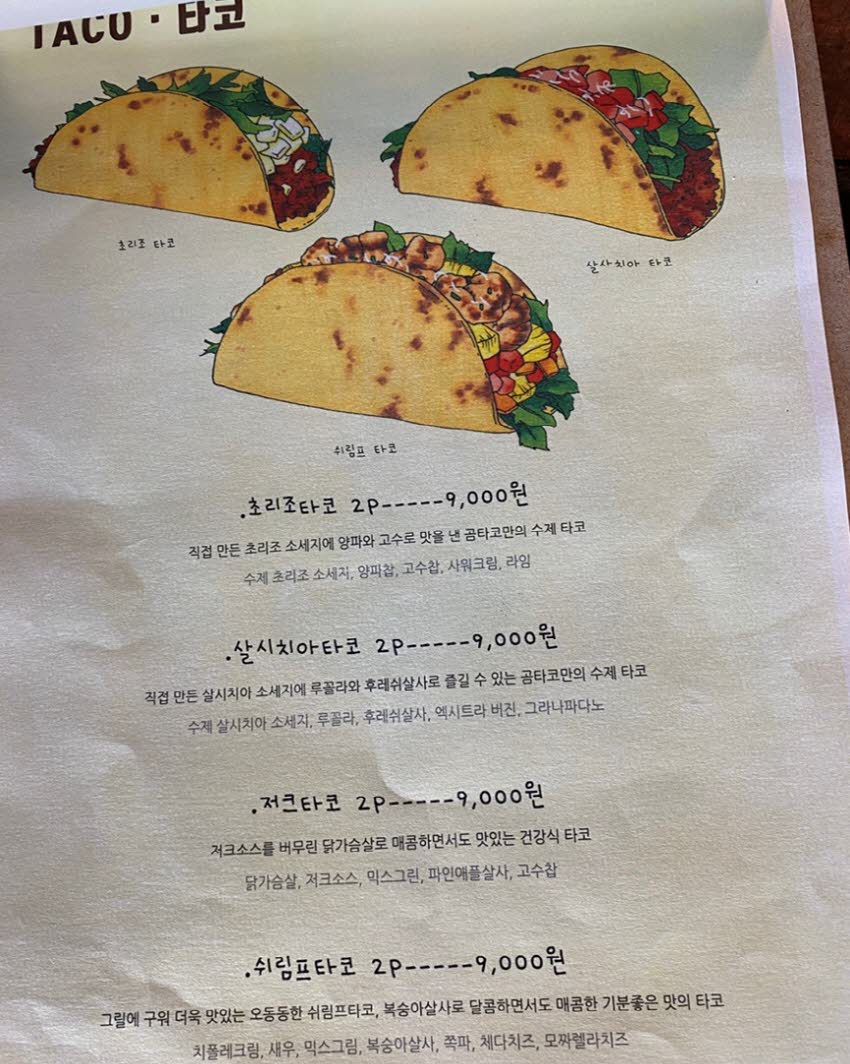 TACO · 타코
초리조 타코
살사치아 타코
쉬림프 타코
.초리조타코 2P-----9,000원
직접 만든 초리조 소세지에 양파와 고수로 맛을 낸 곰타코만의 수제 타코
수제 초리조 소세지, 양파찹, 고수찹, 사워크림, 라임
.살시치아타코 2P-----9,000원
직접 만든 살시치아 소세지에 루꼴라와 후레쉬살사로 즐길 수 있는 곰타코만의 수제 타코
수제 살시치아 소세지, 루꼴라, 후레쉬살사, 엑시트라 버진, 그라나파다노
.저크타코 2P-----9,000원
저크소스를 버무린 닭가슴살로 매콤하면서도 맛있는 건강식 타코
닭가슴살, 저크소스, 믹스그린, 파인애플살사, 고수찹
.쉬림프타코 2P-----9,000원
그릴에 구워 더욱 맛있는 오동동한 쉬림프타코, 복숭아살사로 달콤하면서도 매콤한 기분좋은 맛의 타코
치폴레크림, 새우, 믹스그림, 복숭아살사, 쪽파, 체다치즈, 모짜렐라치즈